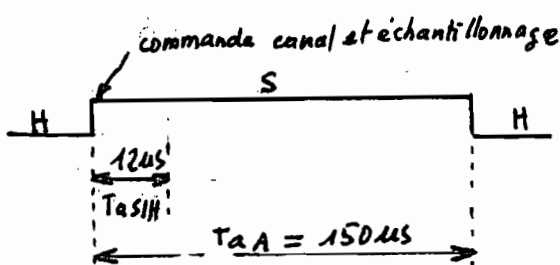 commande canal et échantillonnage
S
H
H
12us
TaS/H
TaA = 150us